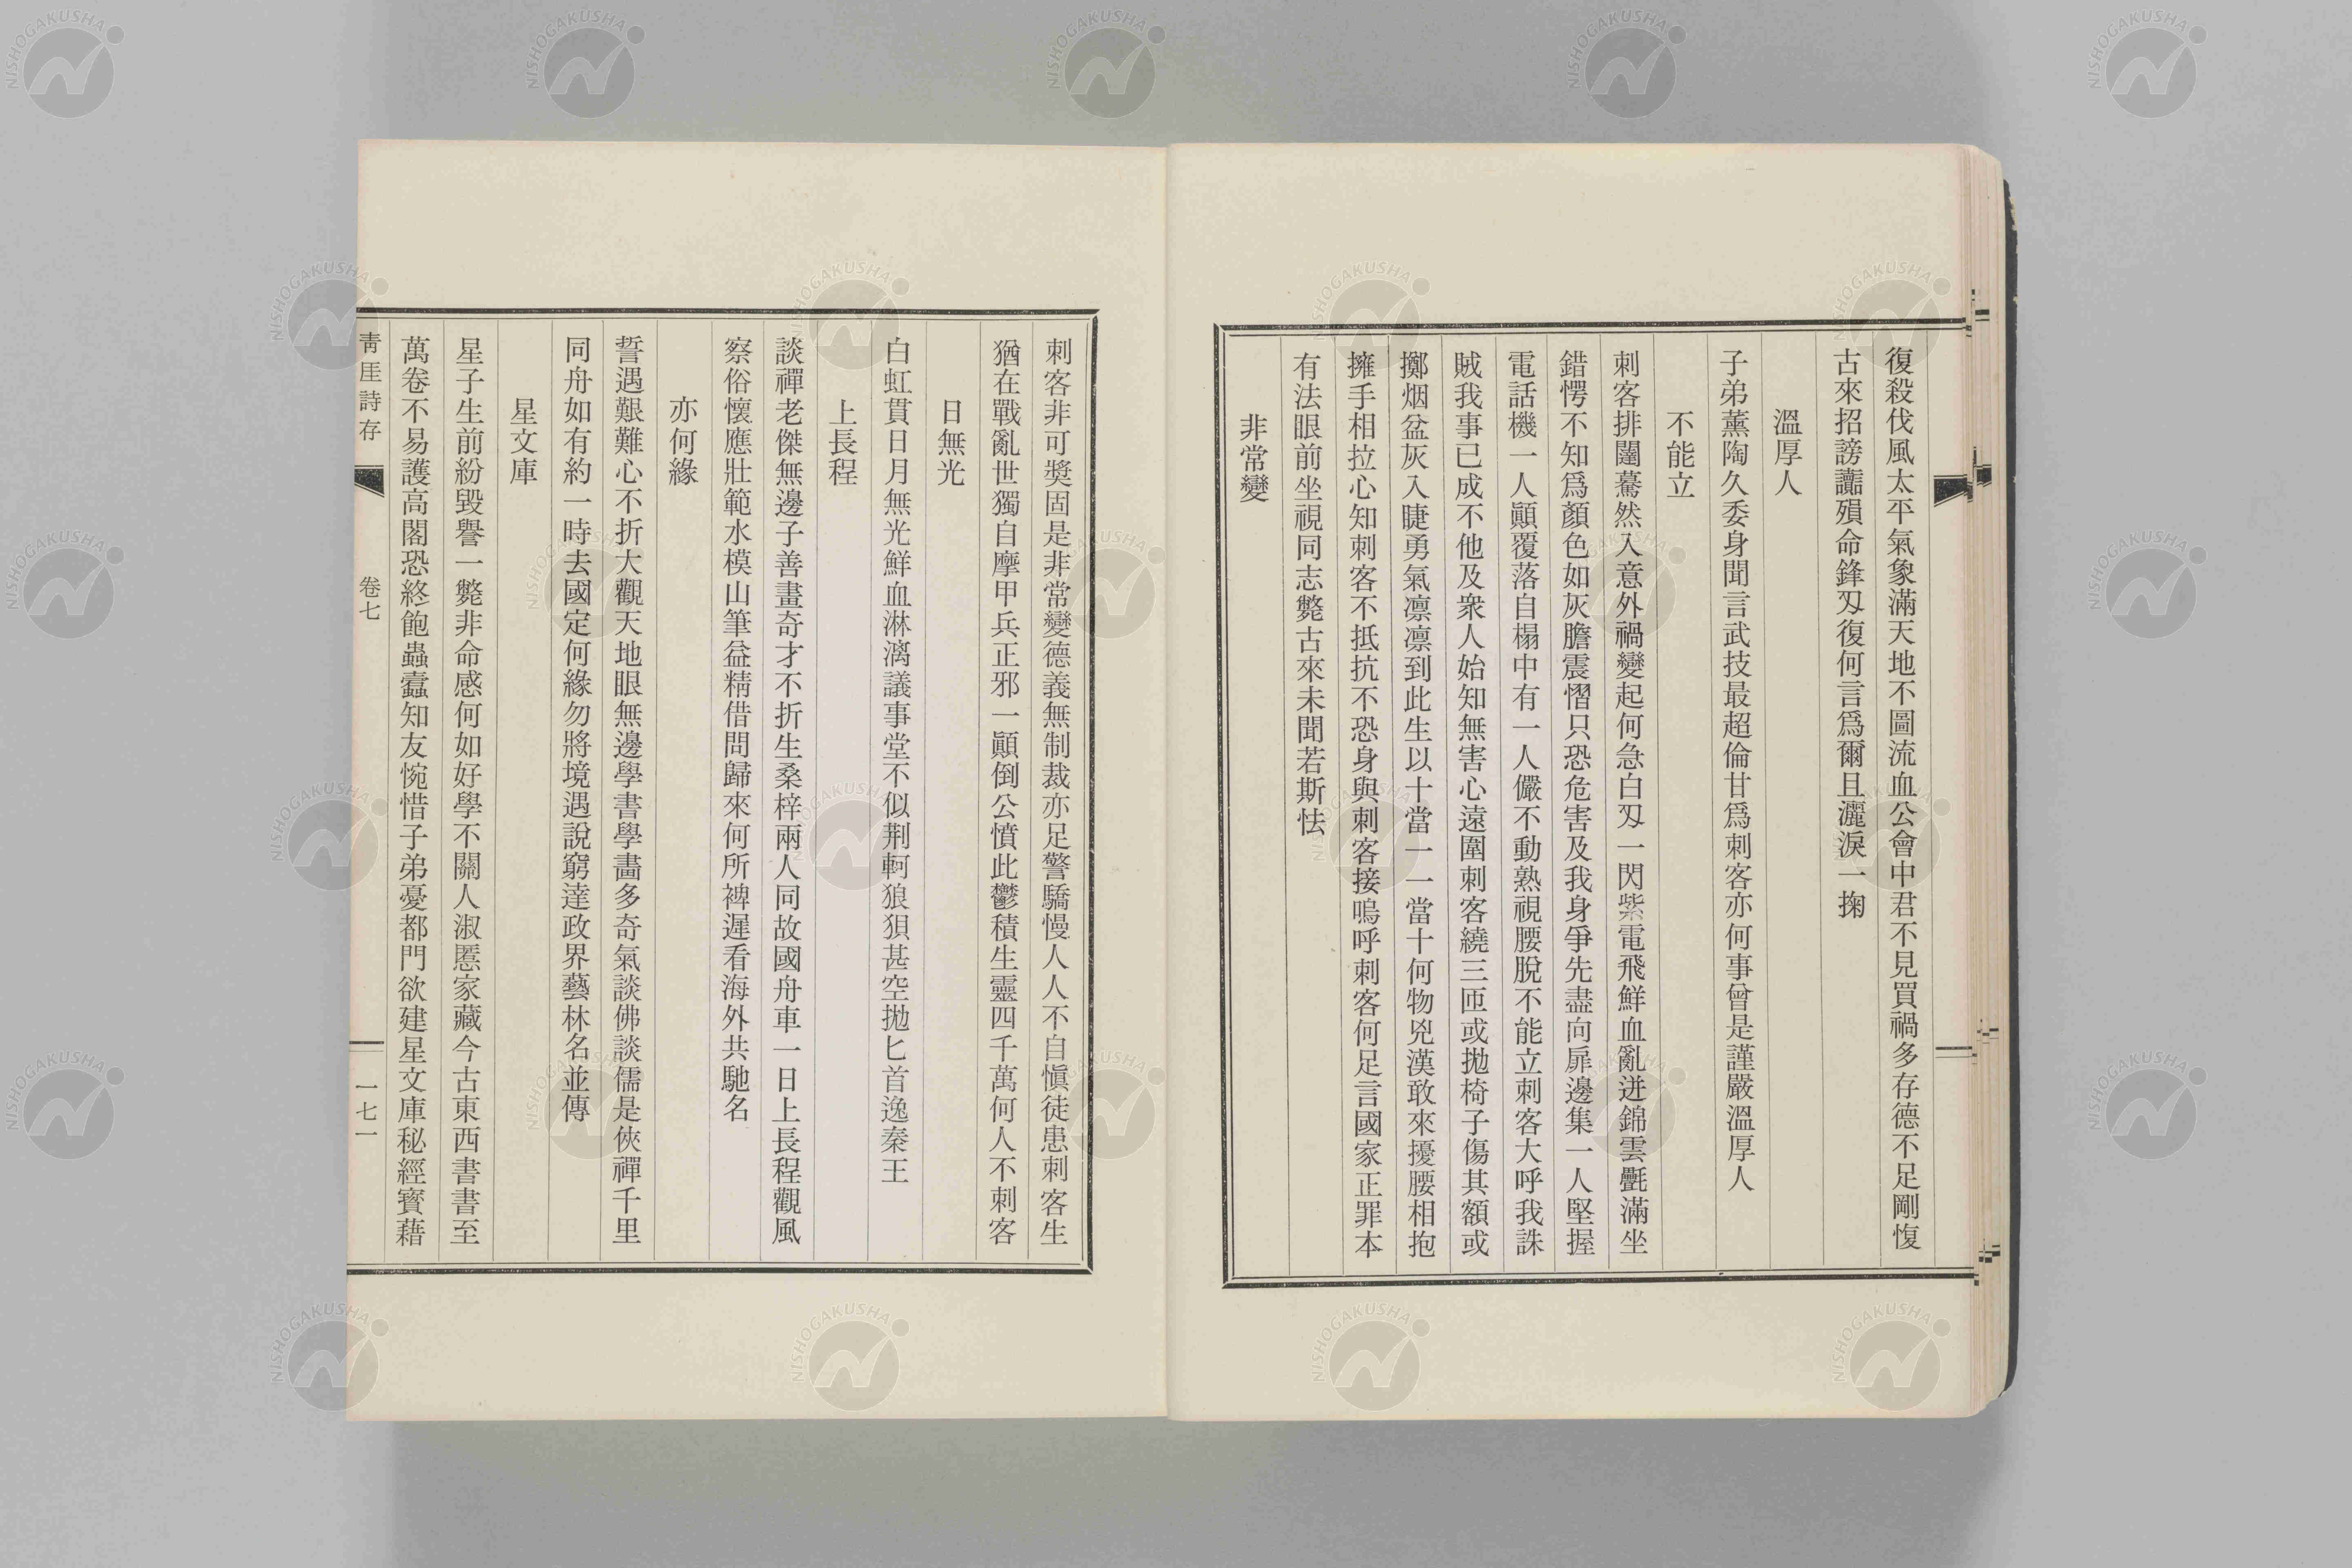 復殺伐風太平氣象滿天地不圖流血公會中君不見買禍多存德不足剛愎
古來招謗讟殞命鋒刄復何言爲爾且灑淚一掬
溫厚人
子弟薰陶久委身聞言武技最超倫甘爲刺客亦何事曾是謹嚴溫厚人
不能立
刺客排闥驀然入意外禍變起何急白刄一閃紫電飛鮮血亂迸錦雲氍滿坐
錯愕不知爲顏色如灰膽震慴只恐危害及我身爭先盡向扉邊集一人堅握
電話機一人顚覆落自榻中有一人儼不動熟視腰脫不能立刺客大呼我誅
賊我事已成不他及衆人始知無害心遠圍刺客繞三匝或拋椅子傷其額或
擲烟盆灰入睫勇氣凛凛到此生以十當一一當十何物兇漢敢來擾腰相抱
擁手相拉心知刺客不抵抗不恐身與刺客接嗚呼刺客何足言國家正罪本
有法眼前坐視同志斃古來未聞若斯怯
非常變
刺客非可奬固是非常變德義無制裁亦足警驕慢人人不自愼徒患刺客生
猶在戰亂世獨自摩甲兵正邪一顚倒公憤此鬱積生靈四千萬何人不刺客
日無光
白虹貫日月無光鮮血淋漓議事堂不似荆軻狼狽甚空拋匕首逸秦王
上長程
談禪老傑無邊子善畫奇才不折生桑梓兩人同故國舟車一日上長程觀風
察俗懷應壯範水模山筆益精借問歸來何所裨遲看海外共馳名
亦何緣
誓遇艱難心不折大觀天地眼無邊學書學畵多奇氣談佛談儒是俠禪千里
同舟如有約一時去國定何緣勿將境遇說窮達政界藝林名並傳
星文庫
星子生前紛毀譽一斃非命感何如好學不關人淑慝家藏今古東西書書至
萬卷不易護高閣恐終飽蟲蠹知友惋惜子弟憂都門欲建星文庫秘經寶藉
靑厓詩存
卷七
一七一
NISHOGAKUSHA